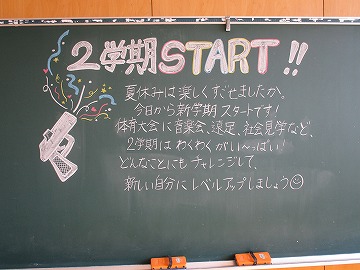 2学期START!!
夏休みは楽しくすごせましたか。
今日から新学期スタートです!
体育大会に音楽会、遠足、社会見学など、
2学期はわくわくがい〜っぱい!
どんなことにもチャレンジして、
新しい自分にレベルアップしましょう☺